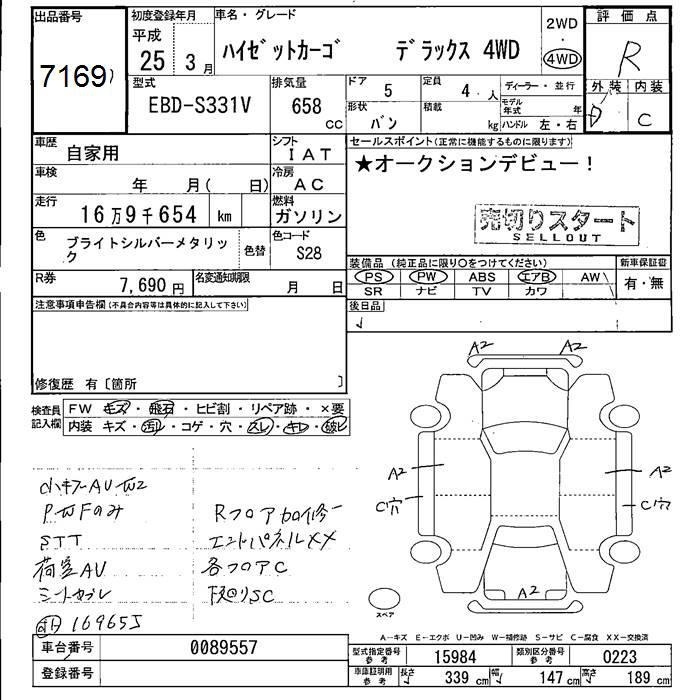 出品番号
7169
初度登録年月
平成
25 3月
車名・グレード
ハイゼットカーゴ デラックス 4WD
2WD
・
4WD
評価点
R
外装 内装
D C
型式
EBD-S331V
排気量
658
cc
ドア 5
定員 4 人
ディーラー・並行
モデル年式 年
形状 バン
積載 kg
ハンドル 左・右
車歴 自家用
シフト IAT
車検 年 月( 日)
冷房 AC
走行 16万9千654 km
燃料 ガソリン
色 ブライトシルバーメタリック
色替
色コード S28
R券 7,690円
名変通知期限 月 日
セールスポイント(正常に機能するものに限ります)
★オークションデビュー!
売切りスタート
SELLOUT
装備品(純正品に限り○をつけてください)
PS PW ABS エアB AW
SR ナビ TV カワ
新車保証書
有・無
後日品
注意事項申告欄(不具合内容等は具体的に記入して下さい)
修復歴 有〔箇所 〕
検査員記入欄
FW キズ・飛石・ヒビ割・リペア跡・×要
内装 キズ・汚レ・コゲ・穴・スレ・キレ・破レ
小キズAUW2
PWFのみ
STT
荷室AU
シートカブレ
Rフロア加修
エンドパネルXX
各フロアC
下回りSC
169655
A2 A2
A2 A2
C穴 C穴
A2
スペア
A-キズ E-エクボ U-凹み W-補修跡 S-サビ C-腐食 XX-交換済
車台番号 0089557
登録番号
型式指定番号 参考 15984
類別区分番号 参考 0223
車庫証明用 参考 長さ 339 cm 幅 147 cm 高さ 189 cm